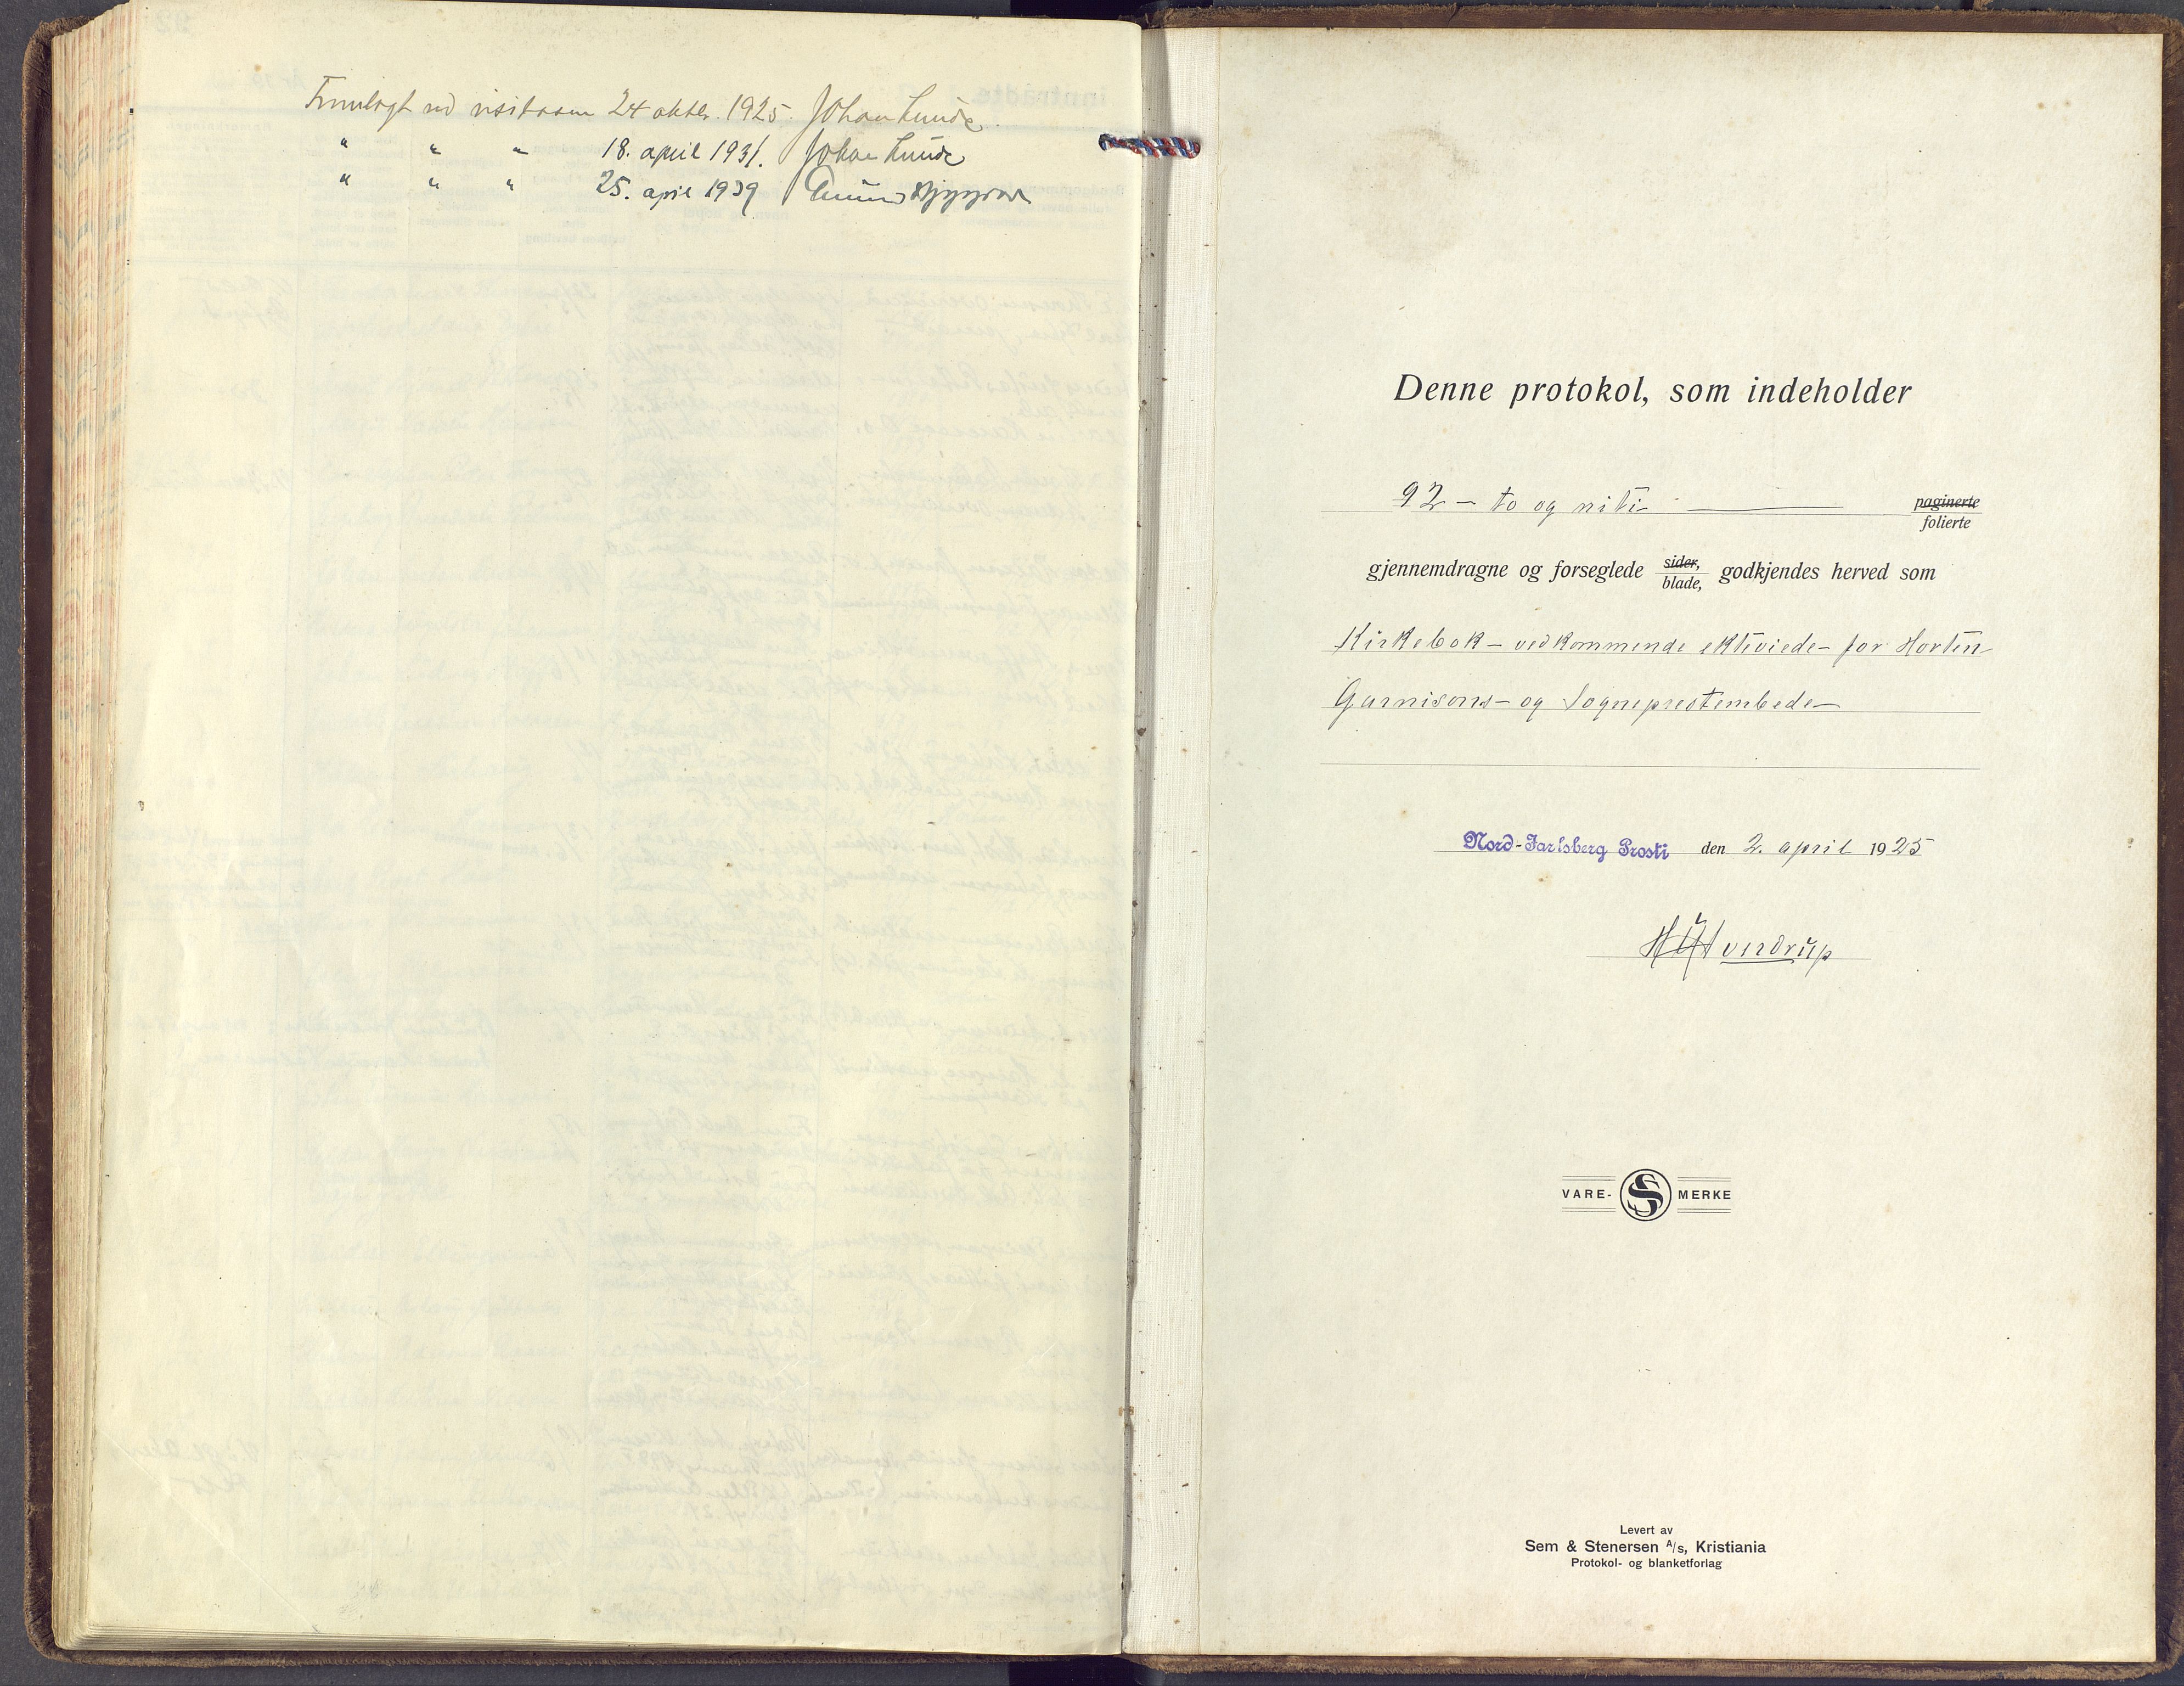 Fremlagt ved visitasen 24 oktbr. 1925. Johan Lunde.
" " " 18. april 1931. Johan Lunde
" " " 25. april 1939
Denne protokol, som indeholder
92 — to og niti — paginerte
folierte
gjennemdragne og forseglede sider, blade, godkjendes herved som
Kirkebok – vedkommende ekteviede – for Horten
Garnisons – og Sogneprestembede –
Nord-Jarlsberg Prosti den 2. april 1925
Sverdrup
VARE- S MERKE
Levert av
Sem & Stenersen A/s, Kristiania
Protokol- og blanketforlag